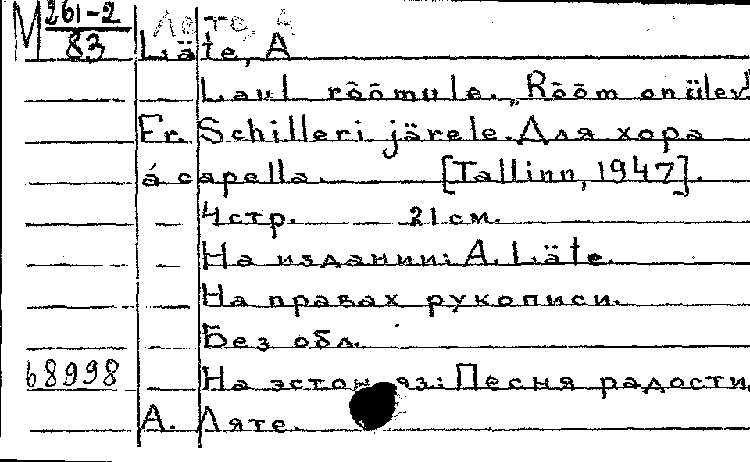 М 261-2
83
Лете, А
Läte, A
Laul rõõmule. „Rõõm on ülev"
Fr. Schilleri järele. Для хора
á capella. [Tallinn, 1947].
4 стр. 21 см.
На издании: A. Läte.
На правах рукописи.
Без обл.
68998 На эстон яз: Песня радости
А. Ляте.